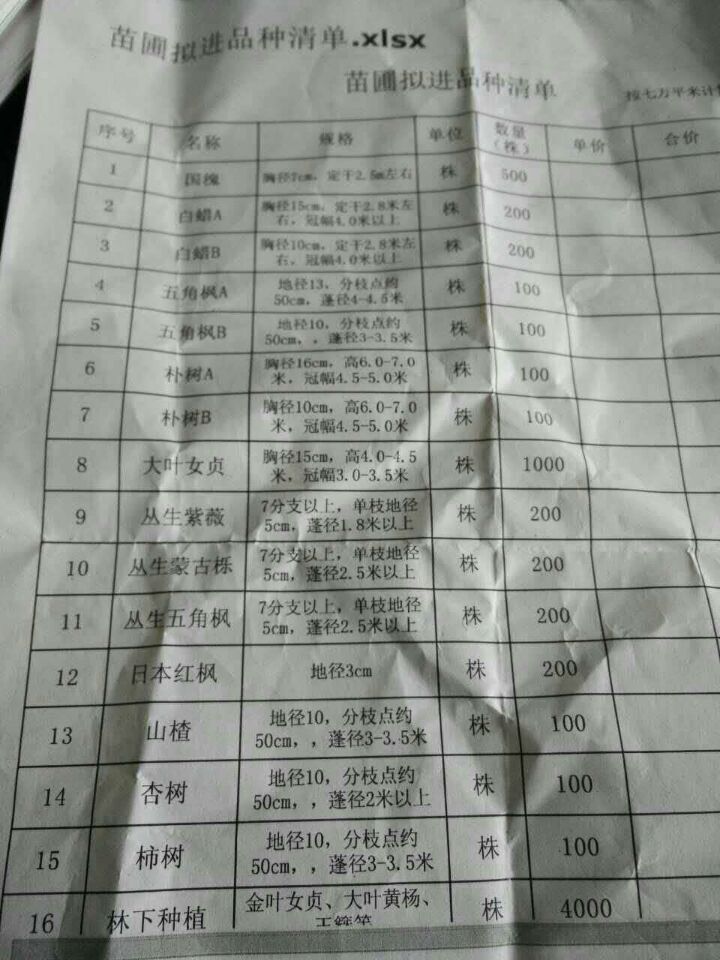 苗圃拟进品种清单.xlsx
苗圃拟进品种清单
按七万平米计
序号 名称 规格 单位 数量（株） 单价 合价
1 国槐 胸径7cm，定干2.5m左右 株 500
2 白蜡A 胸径15cm，定干2.8米左右，冠幅4.0米以上 株 200
3 白蜡B 胸径10cm，定干2.8米左右，冠幅4.0米以上 株 200
4 五角枫A 地径13，分枝点约50cm，蓬径4-4.5米 株 100
5 五角枫B 地径10，分枝点约50cm，，蓬径3-3.5米 株 100
6 朴树A 胸径16cm，高6.0-7.0米，冠幅4.5-5.0米 株 100
7 朴树B 胸径10cm，高6.0-7.0米，冠幅4.5-5.0米 株 100
8 大叶女贞 胸径15cm，高4.0-4.5米，冠幅3.0-3.5米 株 1000
9 丛生紫薇 7分支以上，单枝地径5cm，蓬径1.8米以上 株 200
10 丛生蒙古栎 7分支以上，单枝地径5cm，蓬径2.5米以上 株 200
11 丛生五角枫 7分支以上，单枝地径5cm，蓬径2.5米以上 株 200
12 日本红枫 地径3cm 株 200
13 山楂 地径10，分枝点约50cm，，蓬径3-3.5米 株 100
14 杏树 地径10，分枝点约50cm，，蓬径2米以上 株 100
15 柿树 地径10，分枝点约50cm，，蓬径3-3.5米 株 100
16 林下种植 金叶女贞、大叶黄杨、 株 4000